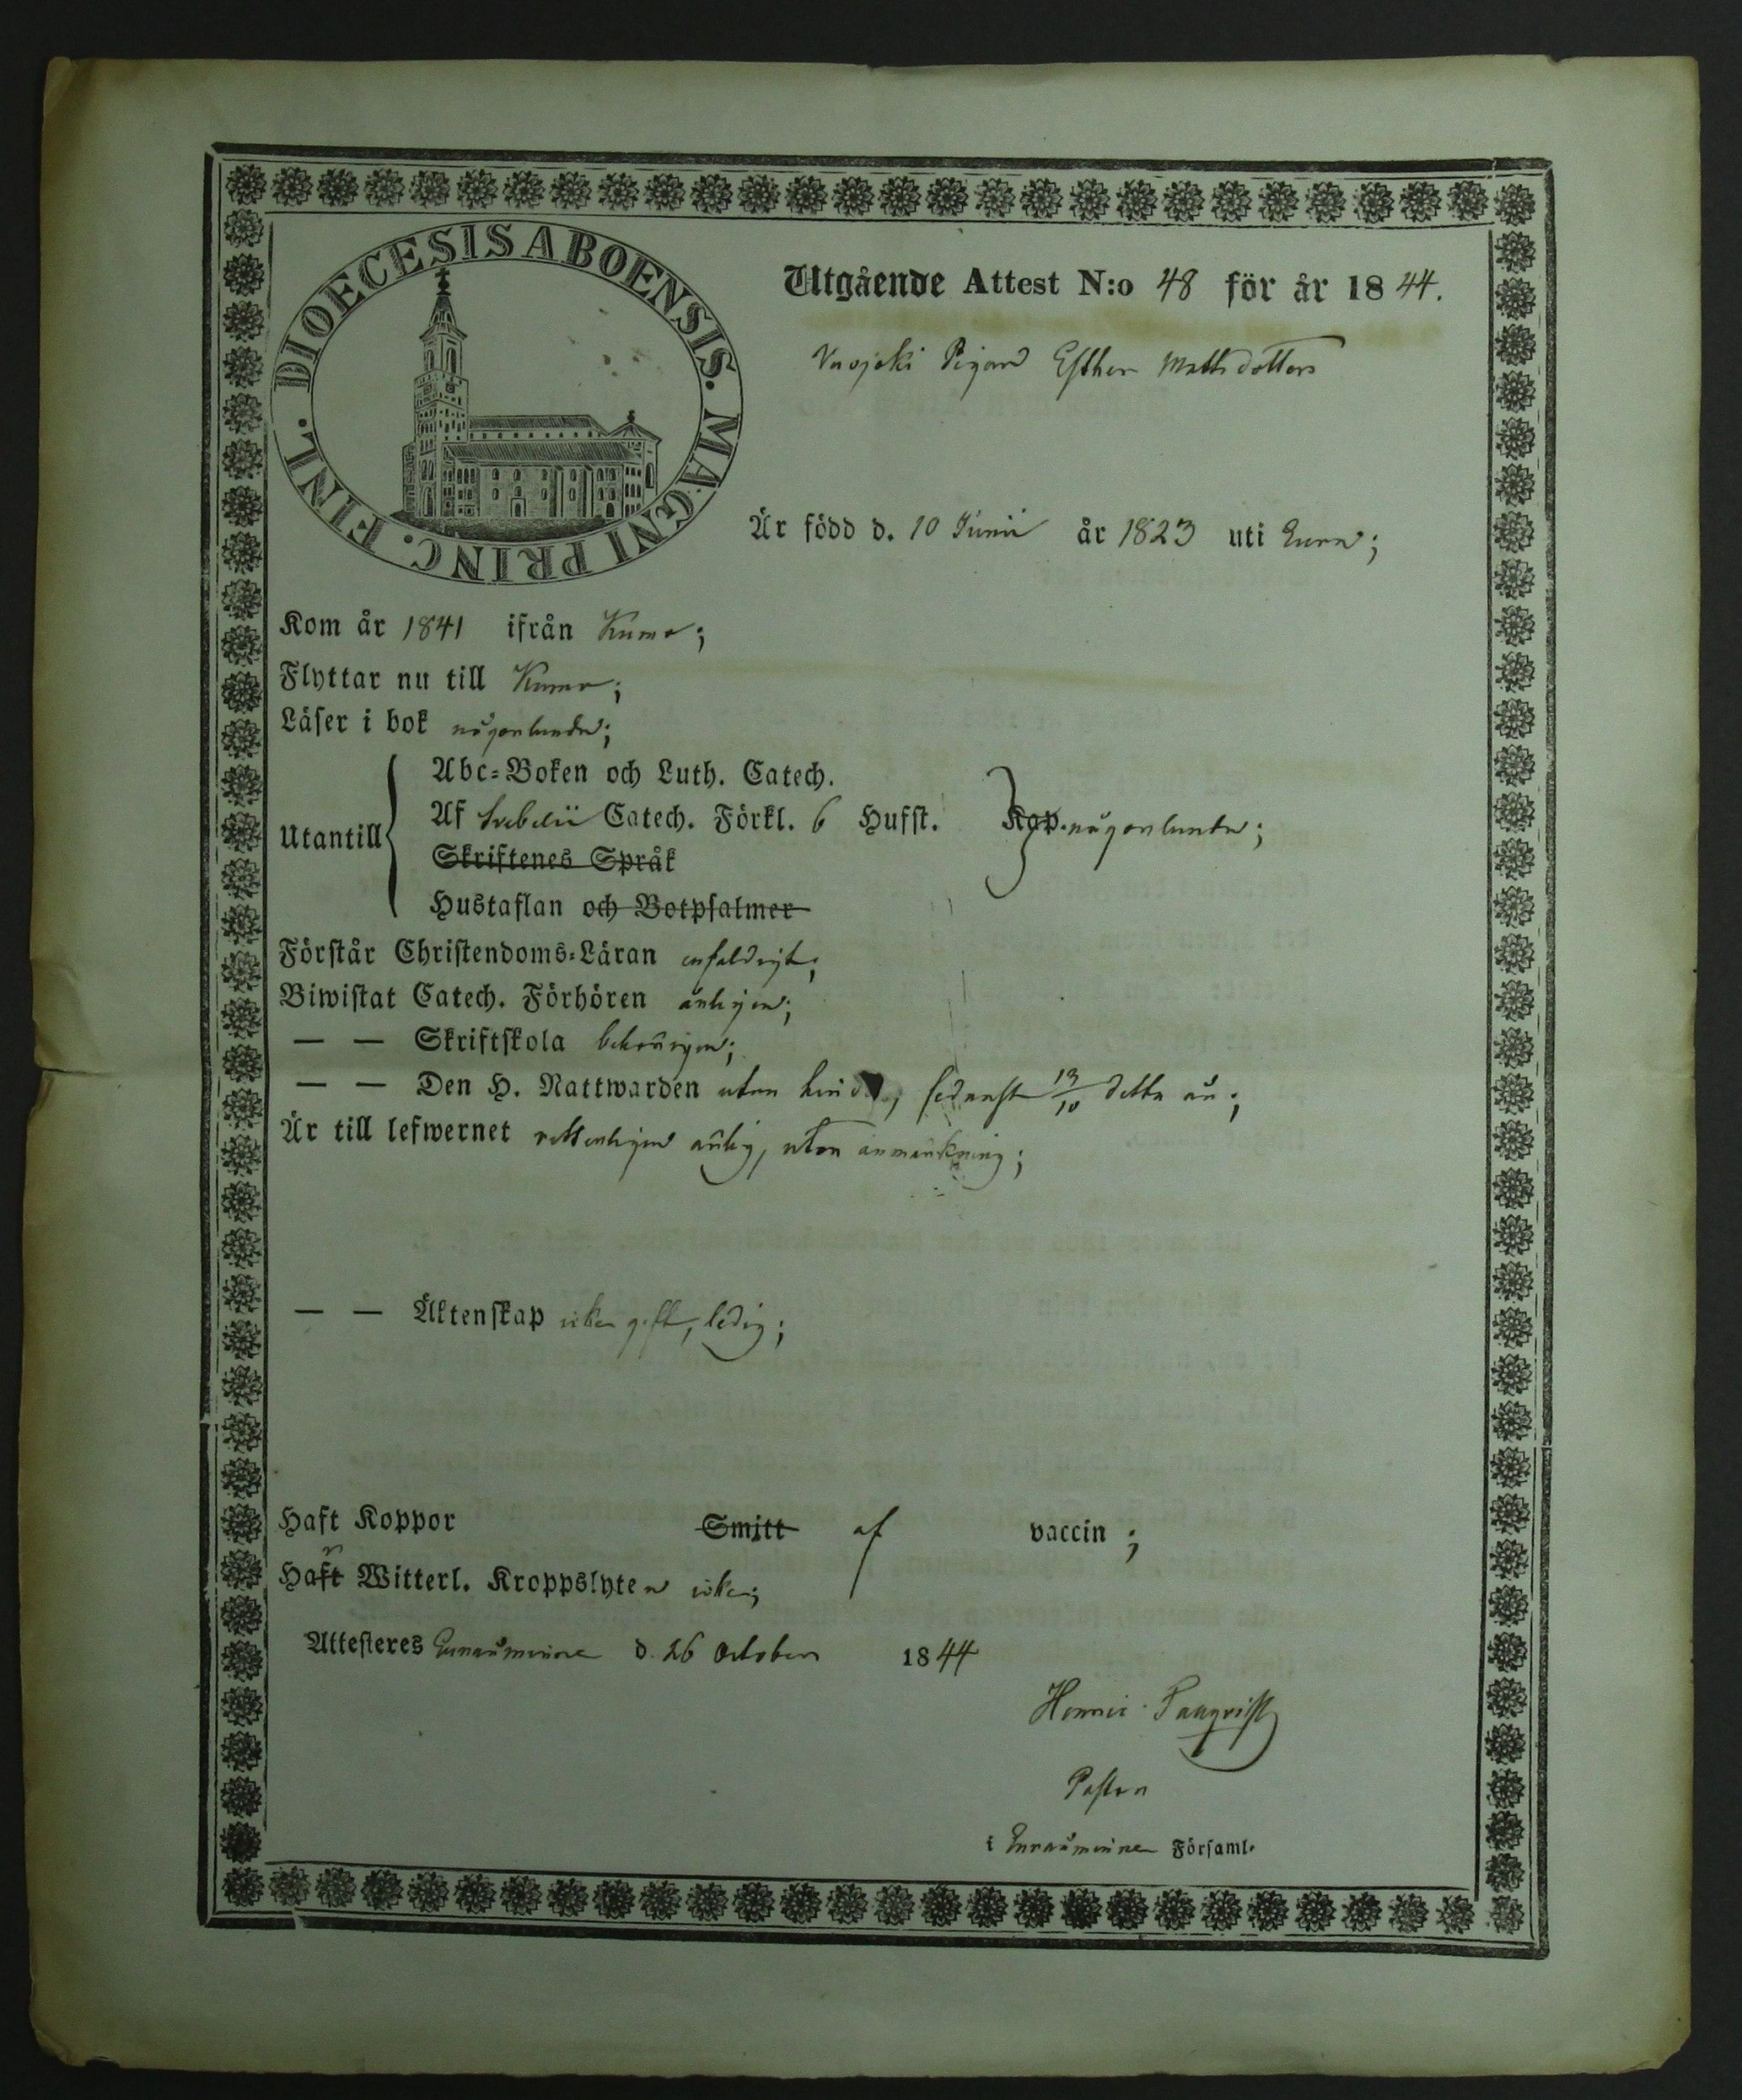 DIOECESIS ABOENSIS. MAGNI PRINC. FINL.
Utgående Attest N:o 48 för år 1844.
Pigan Esther Mattsdotter
Är född d. 10 Junii år 1823 uti Eura;
Kom år 1841 ifrån Kumo;
Flyttar nu till Kumo;
Läser i bok någorlunda;
Utantill
Abc-Boken och Luth. Catech.
Af Svebelii Catech. Förkl. 6 Hufst. Kap. någorlunda;
Skriftenes Språk
Hustaflan och Botpsalmer
Förstår Christendoms-Läran enfaldigt;
Biwistat Catech. Förhören årligen;
— — Skriftskola behörigen;
— — Den H. Nattwarden utan hinder, sednast 13/10 detta år;
Är till lefwernet ärlig, utan anmärkning;
— — Äktenskap icke gift, ledig;
Haft Koppor Smitt af vaccin;
Haft Witterl. Kroppslyten icke;
Attesteres Euraåminne d. 26 October 1844
Henric
Pastor
i Euraåminne Församl.